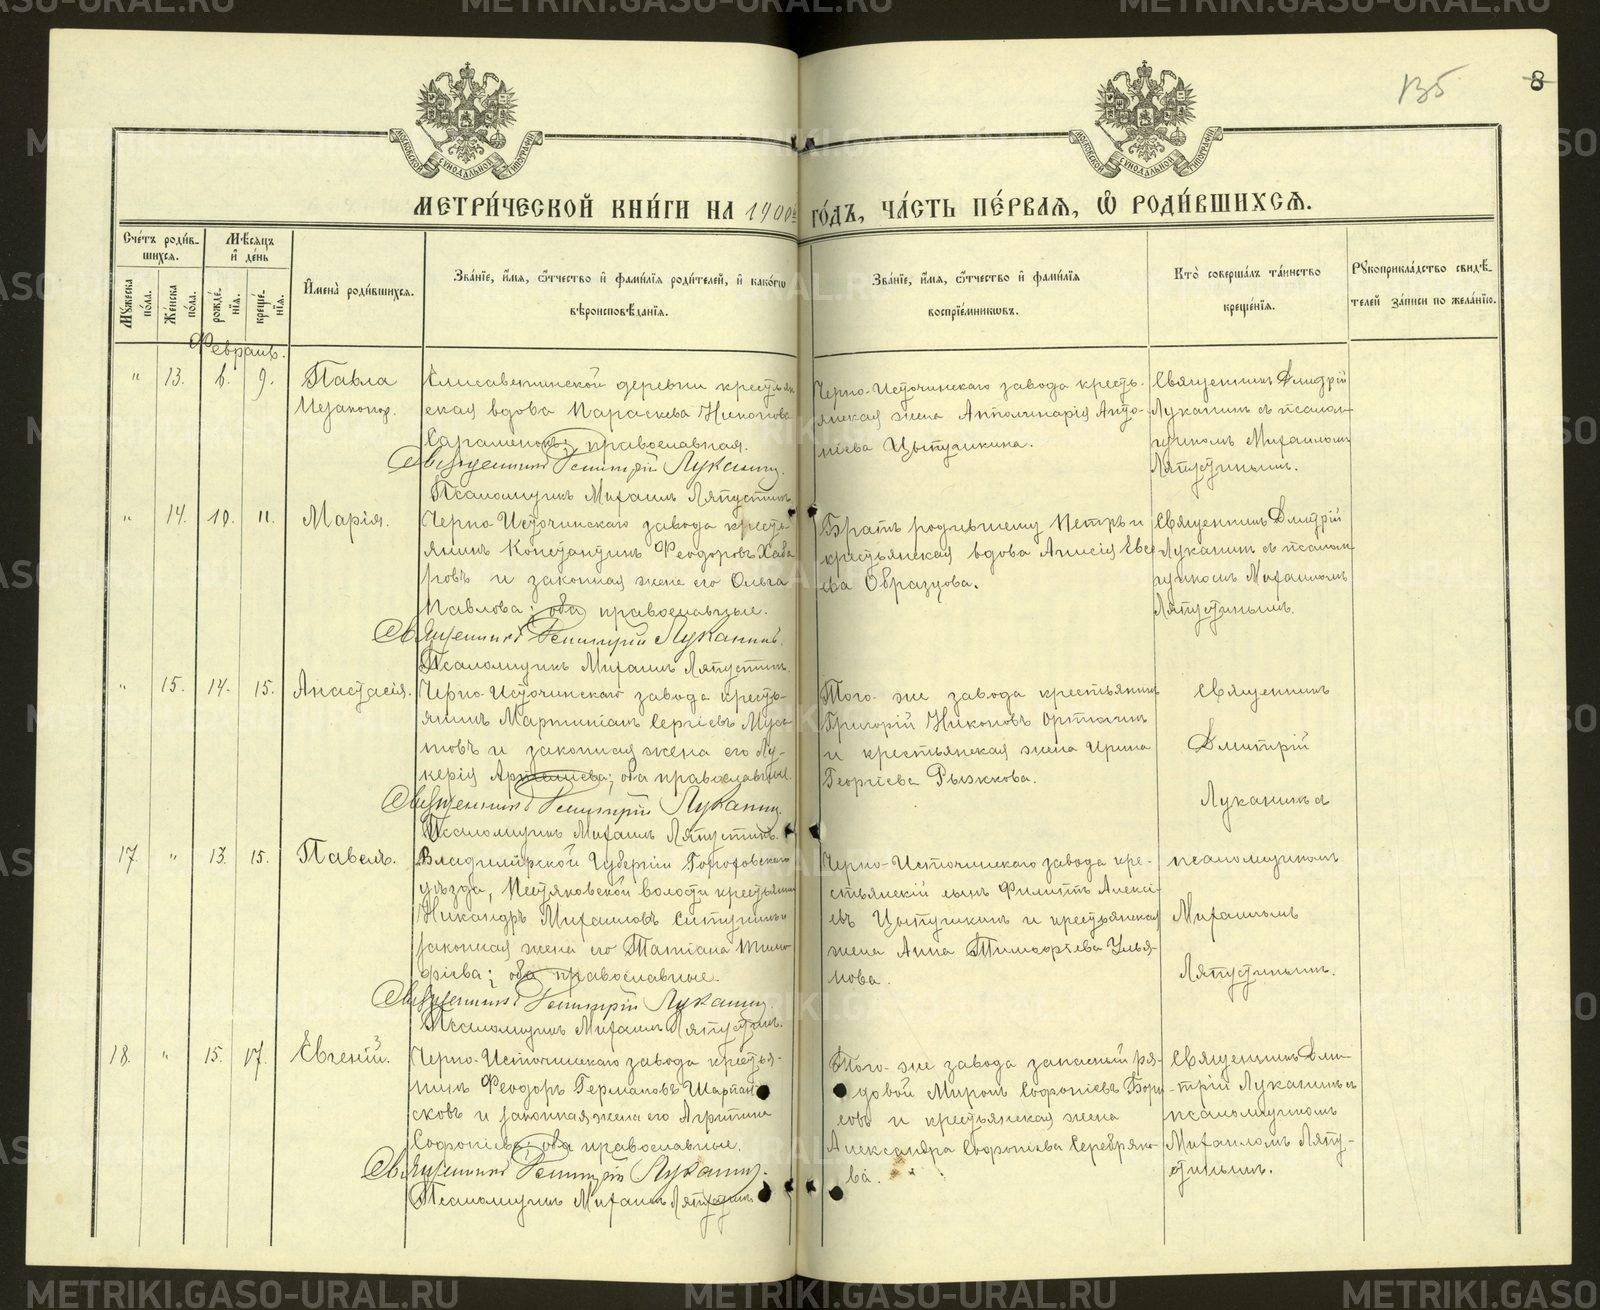 METRIKI.GASO-URAL.RU
135
8
МОСКОВСКОЙ СѴНОДАЛЬНОЙ ТИПОГРАФІИ
МОСКОВСКОЙ СѴНОДАЛЬНОЙ ТИПОГРАФІИ
МЕТРИ́ЧЕСКОЙ КНИ́ГИ НА 1900й ГО́ДЪ, ЧА́СТЬ ПЕ́РВАЯ, Ѡ РОДИ́ВШИХСЯ.
Сче́тъ роди́в-
шихся.
Мꙋжеска по́ла.
Же́нска по́ла.
Мѣ́сяцъ
и҆ де́нь
рожде́нїя.
креще́нїя.
И҆мена̀ роди́вшихся.
Зва́нїе, и҆́мя, ѻ҆́тчество и҆ фами́лїя роди́телей, и҆ како́гѡ
вѣроисповѣ́данїя.
Зва́нїе, и҆́мя, ѻ҆́тчество и҆ фами́лїя
воспрїе́мникѡвъ.
Кто̀ соверша́лъ та́инство
креще́нїя.
Рꙋкоприкла́дство свидѣ́-
телей за́писи по жела́нїю.
Февраль.
" 13. 6. 9.
Павла
Незаконор.
Елисаветинской деревни крестьян
ская вдова Параскева Никонова
православная.
Священникъ Димитрій Луканинъ.
Псаломщикъ Михаилъ Ляпустинъ
Черно-Источинскаго завода кресть-
янская жена Аполлинарія Анто-
ніева Цыпушкина.
Священникъ Дмитрій
Луканинъ съ псалом-
щикомъ Михаиломъ
Ляпустинымъ.
" 14. 10. 11.
Марія.
Черно-Источинскаго завода кресть-
янинъ Константинъ Феодоровъ Хаба
ровъ и законная жена его Ольга
Павлова; оба православные.
Священникъ Димитрій Луканинъ.
Псаломщикъ Михаилъ Ляпустинъ.
Братъ родившему Петръ и
крестьянская вдова Анисія Евсе
ева Образцова.
Священникъ Дмитрій
Луканинъ съ псалом-
щикомъ Михаиломъ
Ляпустинымъ.
" 15. 14. 15.
Анастасія.
Черно-Источинскаго завода кресть-
янинъ Мартиніанъ Сергіевъ
и законная жена его Лу-
керія оба православные.
Священникъ Димитрій Луканинъ.
Псаломщикъ Михаилъ Ляпустинъ.
Того-же завода крестьянинъ
Григорій Никоновъ
и крестьянская жена Ирина
Георгіева Рыжкова.
Священникъ
Дмитрій
Луканинъ съ
псаломщикомъ
Михаиломъ
Ляпустинымъ.
17. " 13. 15.
Павелъ.
Владимірской Губерніи Гороховскаго
уѣзда, волости крестьянинъ
Никандръ Михаиловъ
законная жена его Татіана Тимо-
фѣева; оба православные.
Священникъ Димитрій Луканинъ.
Псаломщикъ Михаилъ Ляпустинъ.
Черно-Источинскаго завода кре-
стьянскій сынъ Филиппъ Алексі-
евъ Цыпушкинъ и крестьянская
жена Анна Тимофеева Улья-
нова.
18. " 15. 17.
Евгеній.
Черно-Источинскаго завода крестья-
нинъ Феодоръ Германовъ
и законная жена его Агриппина
оба православные.
Священникъ Димитрій Луканинъ.
Псаломщикъ Михаилъ Ляпустинъ
Того-же завода запасный ря-
довой Миронъ Софоніевъ Бори
совъ и крестьянская жена
Александра Софоніева Серебряко-
ва.
Священникъ Дми-
трій Луканинъ съ
псаломщикомъ
Михаиломъ Ляпу-
стинымъ.
METRIKI.GASO-URAL.RU